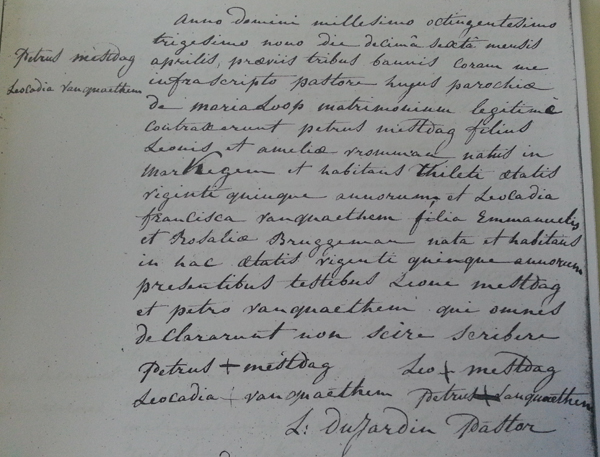 Petrus mestdag
Leocadia vanquaethem
Anno domini millesimo octingentesimo
trigesimo nono die decimâ sextâ mensis
aprilis, præviis tribus bannis coram me
infrascripto pastore hujus parochiæ
de maria Loop matrimonium legitimè
contraxerunt petrus mestdag filius
Leonis et ameliæ vromman natus in
markegem et habitans thilete ætatis
vigente quinque annorum et Leocadia
francisca vanquaethem filia Emmanuelis
et Rosaliæ Bruggeman nata et habitans
in hac ætatis vigente quinque annorum
presentibus testibus Leone mestdag
et petro vanquaethem qui omnes
declararunt non scire scribere
Petrus + mestdag Leo + mestdag
Leocadia + vanquaethem Petrus + vanquaethem
L: DuJardin Pastor